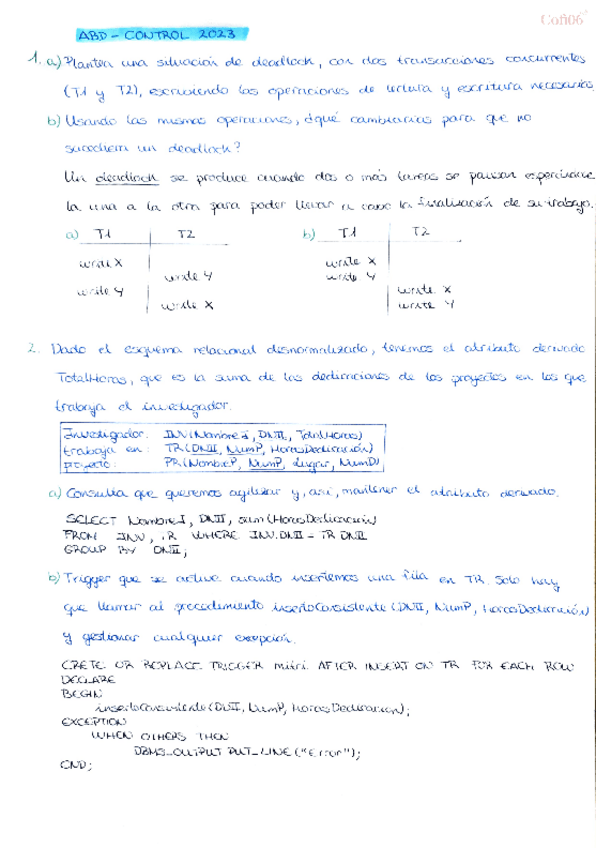 Coñ06
ABD - CONTROL 2023
1. a) Plantea una situación de deadlock, con dos transacciones concurrentes
(T1 y T2), escribiendo las operaciones de lectura y escritura necesarias.
b) Usando las mismas operaciones, ¿qué cambiarías para que no
sucediera un deadlock?
Un deadlock se produce cuando dos o más tareas se pausan esperándose
la una a la otra para poder llevar a cabo la finalización de su trabajo.
a) T1 T2 b) T1 T2
write X write X
write Y write Y
write Y write X
write X write Y
2. Dado el esquema relacional desnormalizado, tenemos el atributo derivado
TotalHoras, que es la suma de las dedicaciones de los proyectos en los que
trabaja el investigador.
Investigador: INV(NombreI, DNII, TotalHoras)
trabaja en: TR(DNII, NumP, HorasDedicación)
proyecto: PR(NombreP, NumP, Lugar, NumD)
a) Consulta que queremos agilizar y, así, mantener el atributo derivado.
SELECT NombreI, DNII, sum(HorasDedicación)
FROM INV, TR WHERE INV.DNII = TR.DNII
GROUP BY DNII;
b) Trigger que se active cuando insertemos una fila en TR. Solo hay
que llamar al procedimiento insertoConsistente(DNII, NumP, HorasDedicación)
y gestionar cualquier excepción.
CRETE OR REPLACE TRIGGER mitri AFTER INSERT ON TR FOR EACH ROW
DECLARE
BEGIN
insertoConsistente(DNII, NumP, HorasDedicacion);
EXCEPTION
WHEN OTHERS THEN
DBMS_OUTPUT.PUT_LINE("Error");
END;